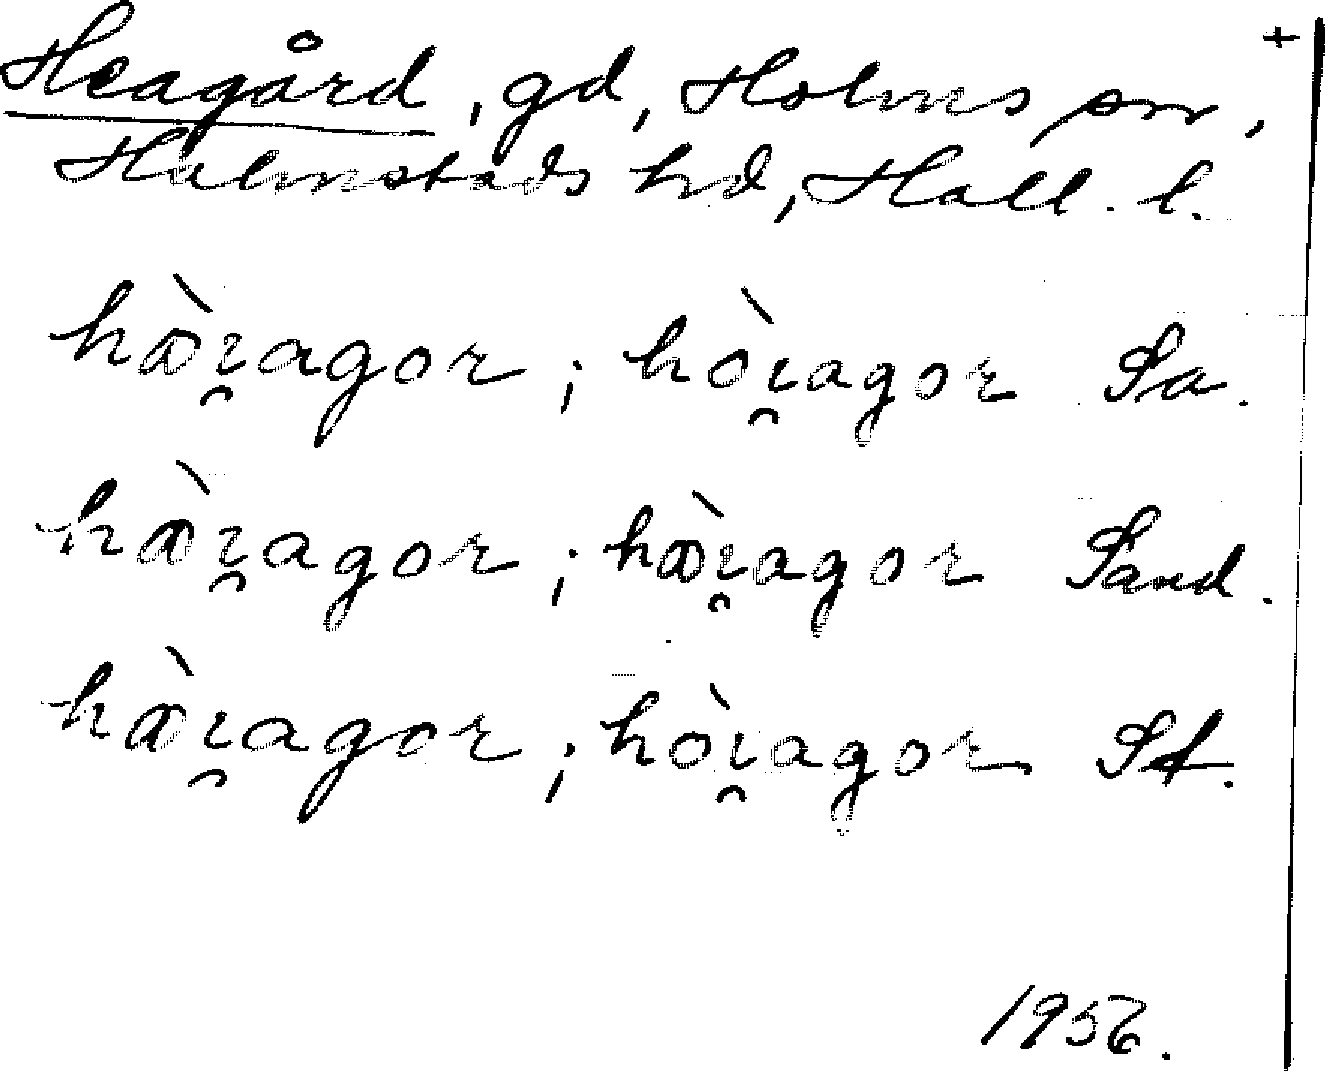 +
Heagård, gd, Holms sn,
Halmstads hd, Hall. l.
hæ̀ı̯agor ; hòı̯agor Sa.
hæ̀ı̯agor ; hæ̀ı̯agor Sand.
hæ̀ı̯agor ; hòı̯agor Sf.
1956.